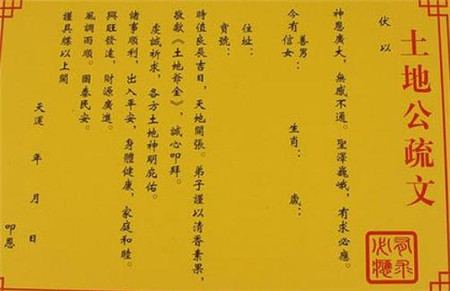 土地公疏文
伏以
神恩廣大，無感不通。聖澤巍峨，有求必應。
今有善男信女　　　生肖：　　　歲：
住址：
寶號：
時值良辰吉日，天地開張。弟子謹以清香素果，
敬獻《土地爺金》，誠心叩拜。
虔誠祈求，各方土地神明庇佑。
諸事順利，出入平安，身體健康，家庭和睦。
興旺發達，財源廣進。
風調雨順。國泰民安。
謹具牒以上聞
天運　年　月　日　叩恩
有求必應